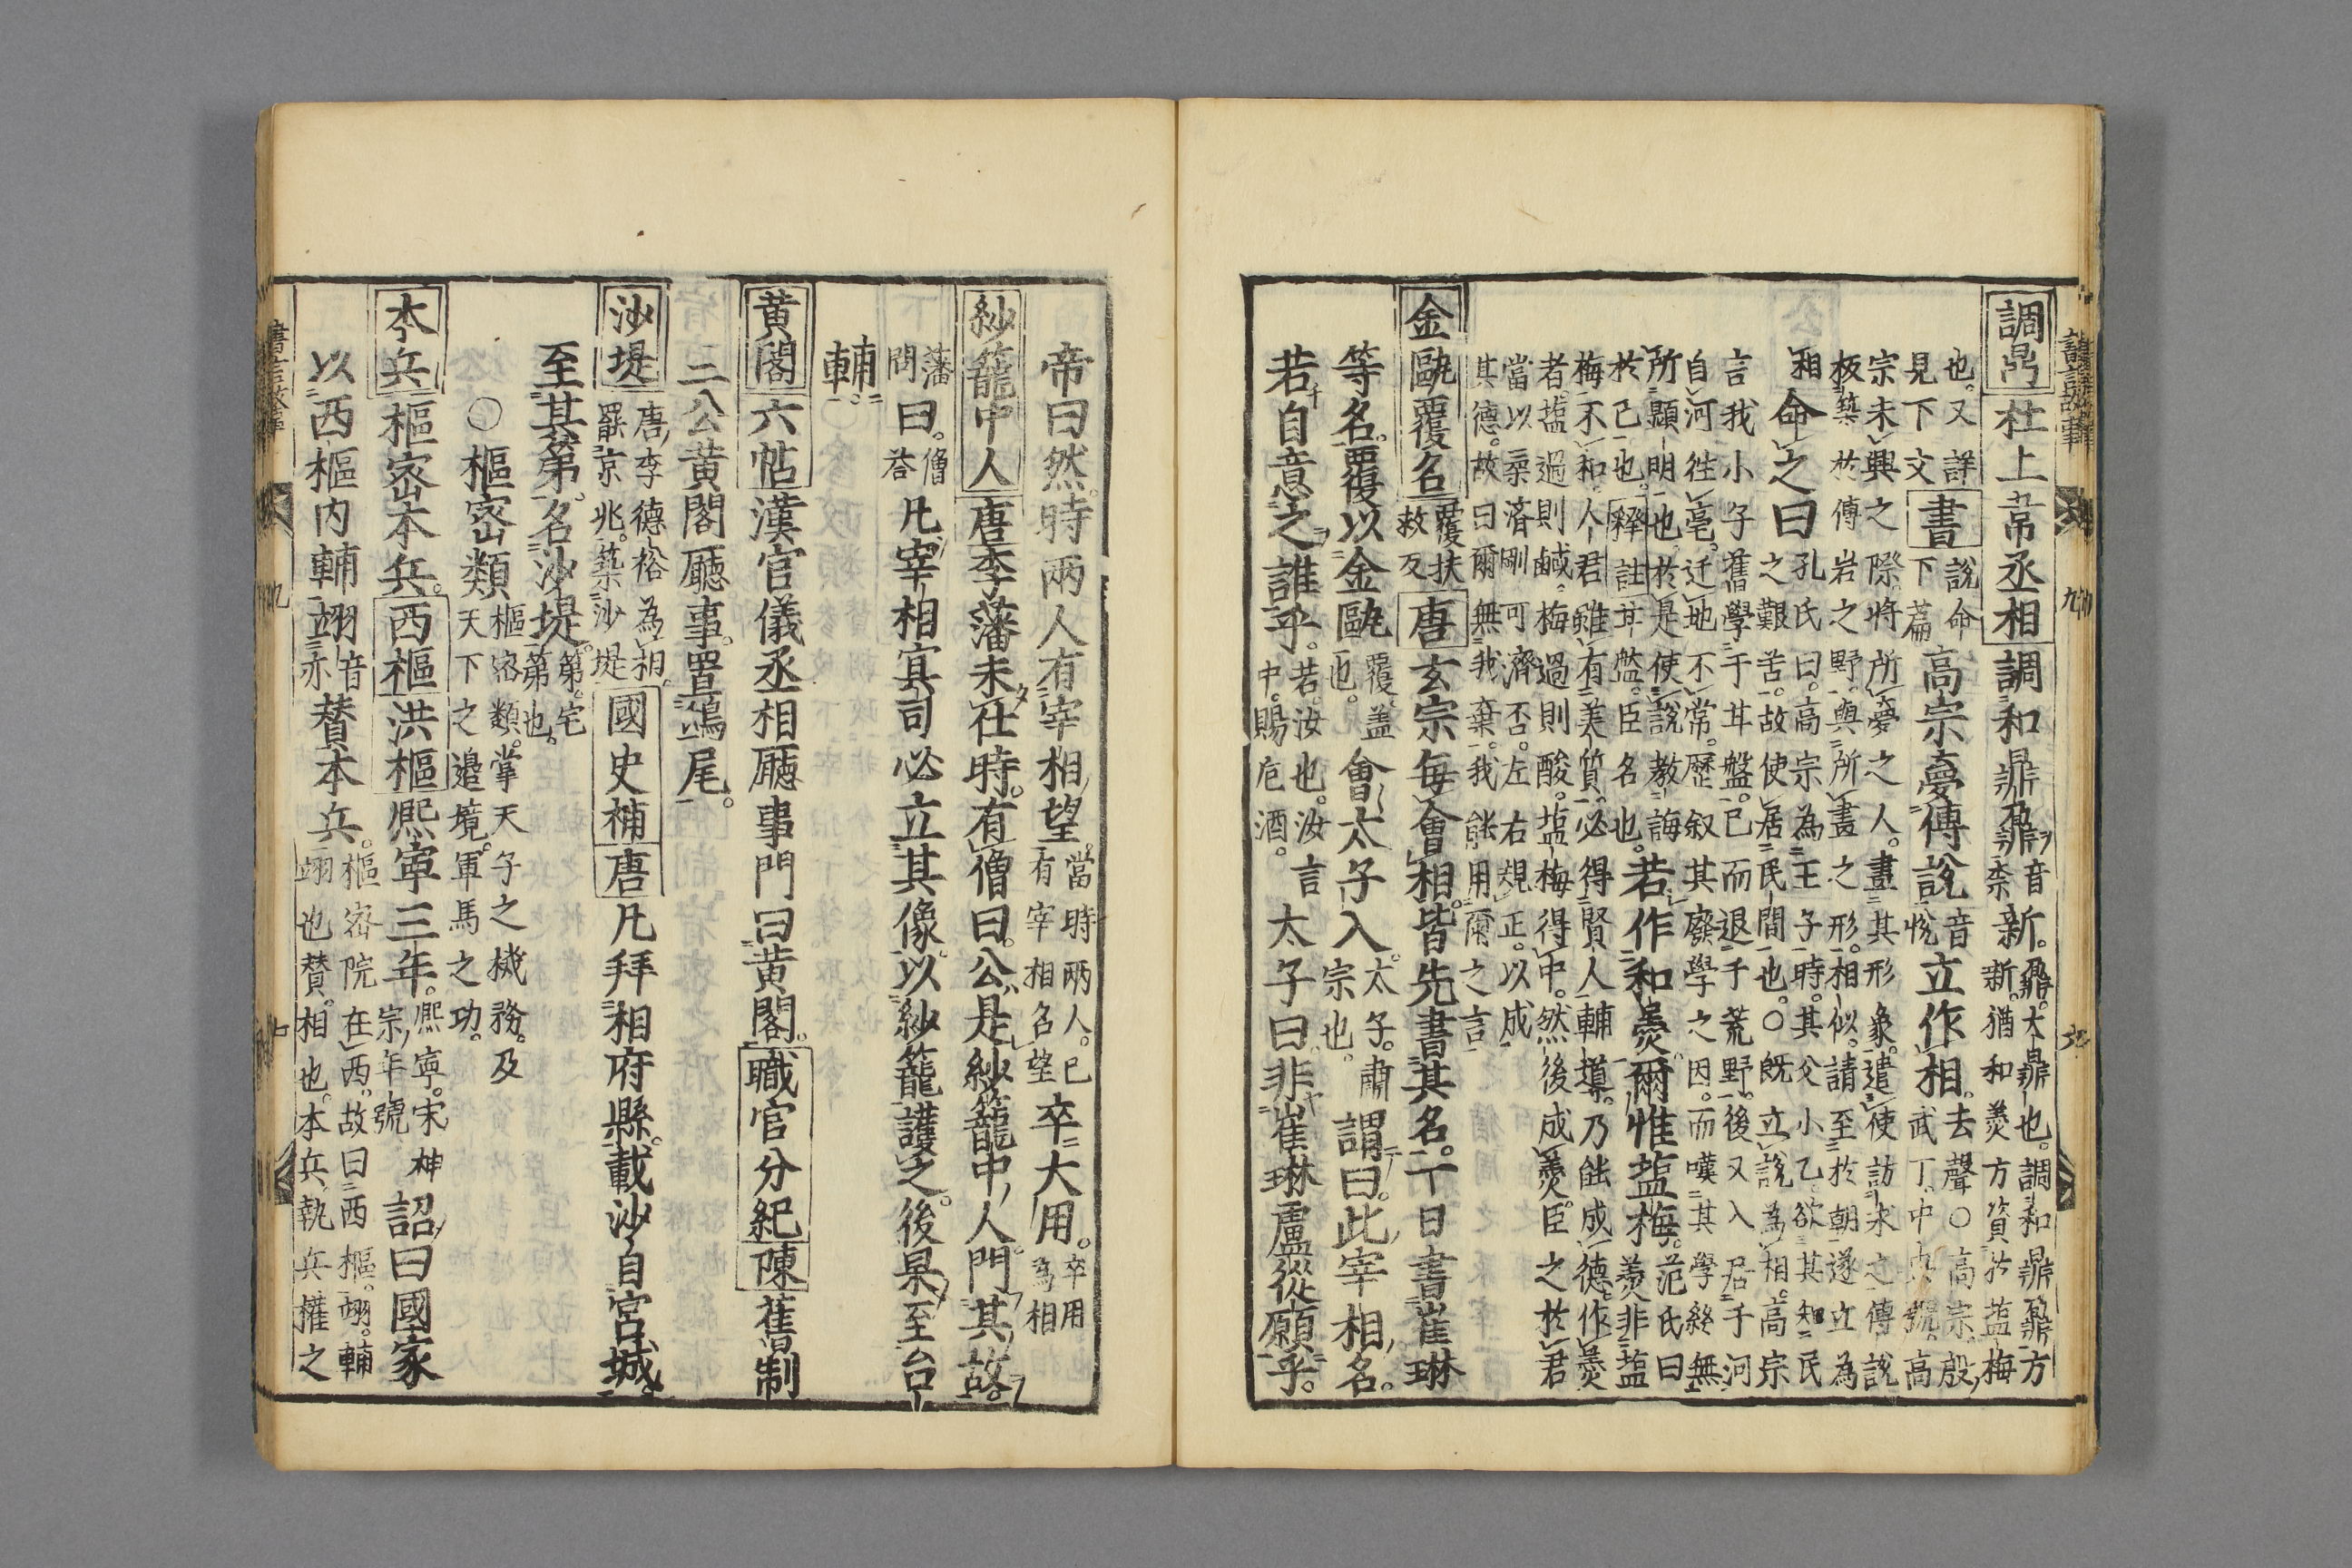 調鼎 杜上韋丞相 調和鼎鼐音柰新。鼐。大鼎也。調和鼎鼐方
新。猶和羹方資於塩梅
也。又詳
見下文 書 說命
下篇 高宗夢傅說 音
悅 立作相。去聲○高宗殷
武丁。中興號。高
宗未興之際。將所夢之人。畫其形象。遣使訪求之傅說
板築於傅岩之野。與所畫之形。相似。請至於朝遂立為
相 命之曰 孔氏曰。高宗為王子時。其父小乙。欲其知民
之艱苦。故使居民間也。○既立說為相。高宗
言我小子舊學于甘盤。已而退于荒野。後又入居于河
自河徃亳。迁地不常。歷叙其廢學之因。而嘆其學終無
所顯明也。於是使說教誨
於己也。釋註甘盤。臣名也。若作和羹。爾惟塩梅。范氏曰
羹非塩
梅不和。人君雖有美質。必得賢人輔導。乃能成德。作羹
者。塩過則鹹。梅過則酸。塩梅得中。然後成羹。臣之於君
當以柔濟剛可濟否。左右規正。以成
其德。故曰爾無我棄。我能用爾之言
金甌覆名 覆扶
救反 唐 玄宗每會相。皆先書其名。一日書崔琳
等名。覆以金甌 覆。蓋
也。會太子入。太子。肅
宗也。謂曰。此宰相名。
若自意之誰乎。若。汝也。汝言
中。賜卮酒。太子曰非崔琳盧從願乎。
書言故事 九
帝曰然。時兩人有宰相望。當時兩人。已
有宰相名望 卒大用。卒用
為相
紗籠中人 唐李藩未仕時。有僧曰。公是紗籠中人。問其故。
藩
問 曰。僧
荅 凡宰相冥司必立其像。以紗籠護之。後果至台
輔。
黄閣 六帖 漢官儀丞相廳事門曰黄閣。職官分紀 陳 舊制
三公黄閣廳事。置鴟尾。
沙堤 唐李德裕為相。
罷京兆。築沙堤 國史補 唐 凡拜相府縣。載沙自宮城。
至其第。名沙堤。第。宅
第也。
○樞密類 樞密類。掌天子之機務。及
天下之邉境。軍馬之功。
本兵 樞密本兵。西樞 洪樞 熈寧三年。熈寧。宋神
宗年號 詔曰國家
以西樞内輔翊 音
亦 賛本兵。樞密院在西。故曰西樞。翊。輔
翊也賛。相也。本兵執兵權之